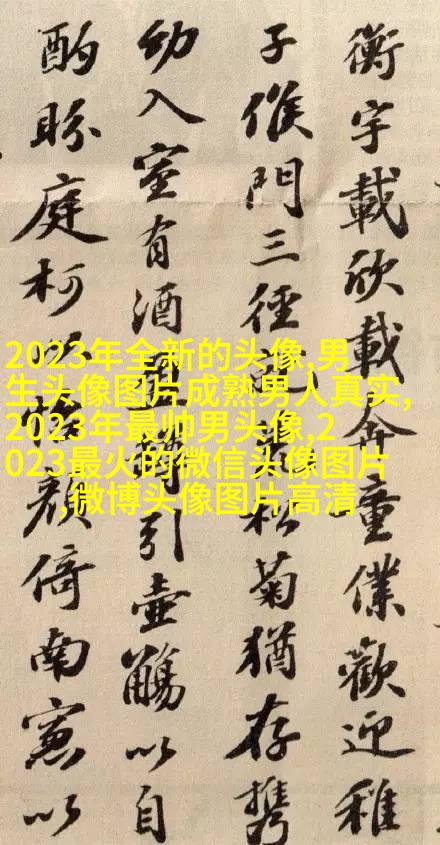 衡宇載欣載奔童僕歡迎稚
子候門三徑松菊猶存携
幼入室有酒引壺觴以自
酌眄庭柯以怡顔倚南窻以
2023年全新的头像,男
生头像图片成熟男人真实,
2023年最帅男头像,2
023最火的微信头像图片
,微博头像图片高清